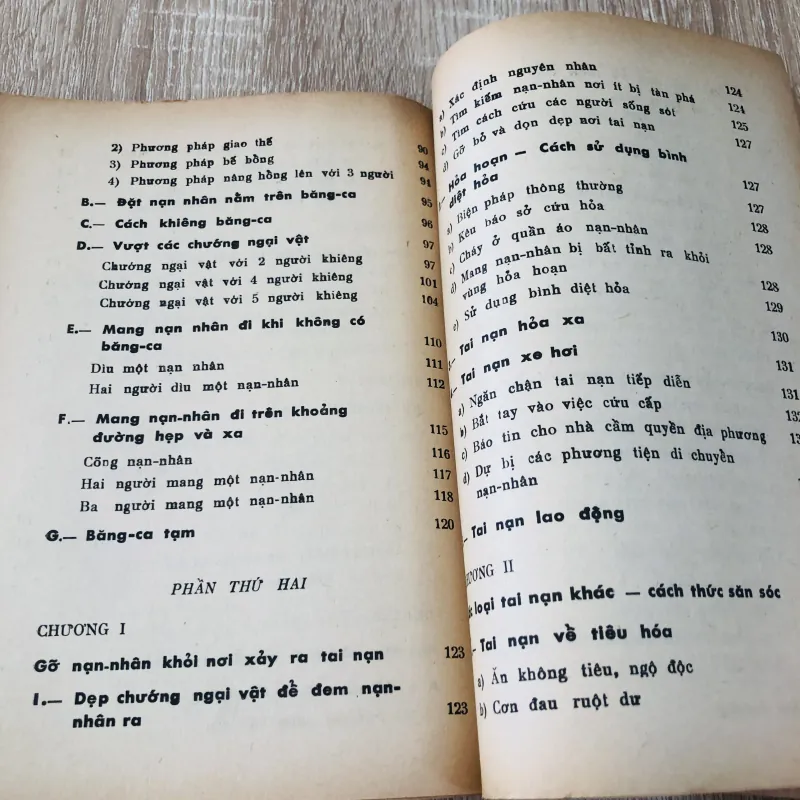 2) Phương pháp giao thế 90
3) Phương pháp bế bồng 94
4) Phương pháp nâng hồng lên với 3 người 94
B.— Đặt nạn nhân nằm trên băng-ca 95
C.— Cách khiêng băng-ca 96
D.— Vượt các chướng ngại vật 97
Chướng ngại vật với 2 người khiêng 97
Chướng ngại vật với 4 người khiêng 101
Chướng ngại vật với 5 người khiêng 104
E.— Mang nạn nhân đi khi không có
băng-ca 110
Dìu một nạn nhân 111
Hai người dìu một nạn-nhân 112
F.— Mang nạn-nhân đi trên khoảng
đường hẹp và xa 115
Cõng nạn-nhân 116
Hai người mang một nạn-nhân 117
Ba người mang một nạn-nhân 118
G.— Băng-ca tạm 120
PHẦN THỨ HAI
CHƯƠNG I
Gỡ nạn-nhân khỏi nơi xảy ra tai nạn 123
I.— Dẹp chướng ngại vật để đem nạn-
nhân ra 123
a) Xác định nguyên nhân 124
b) Tìm kiếm nạn-nhân nơi ít bị tàn phá 124
c) Tìm cách cứu các người sống sót 125
d) Gỡ bỏ và dọn dẹp nơi tai nạn 127
— Hỏa hoạn — Cách sử dụng bình
diệt hỏa 127
a) Biện pháp thông thường 127
b) Kêu báo sở cứu hỏa 128
c) Cháy ở quần áo nạn-nhân 128
d) Mang nạn-nhân bị bất tỉnh ra khỏi
vùng hỏa hoạn 128
e) Sử dụng bình diệt hỏa 129
— Tai nạn hỏa xa 130
— Tai nạn xe hơi 131
a) Ngăn chận tai nạn tiếp diễn 131
b) Bắt tay vào việc cứu cấp 132
c) Báo tin cho nhà cầm quyền địa phương
d) Dự bị các phương tiện di chuyển
nạn-nhân
— Tai nạn lao động
ƯƠNG II
loại tai nạn khác — cách thức săn sóc
— Tai nạn về tiêu hóa
a) Ăn không tiêu, ngộ độc
b) Cơn đau ruột dư